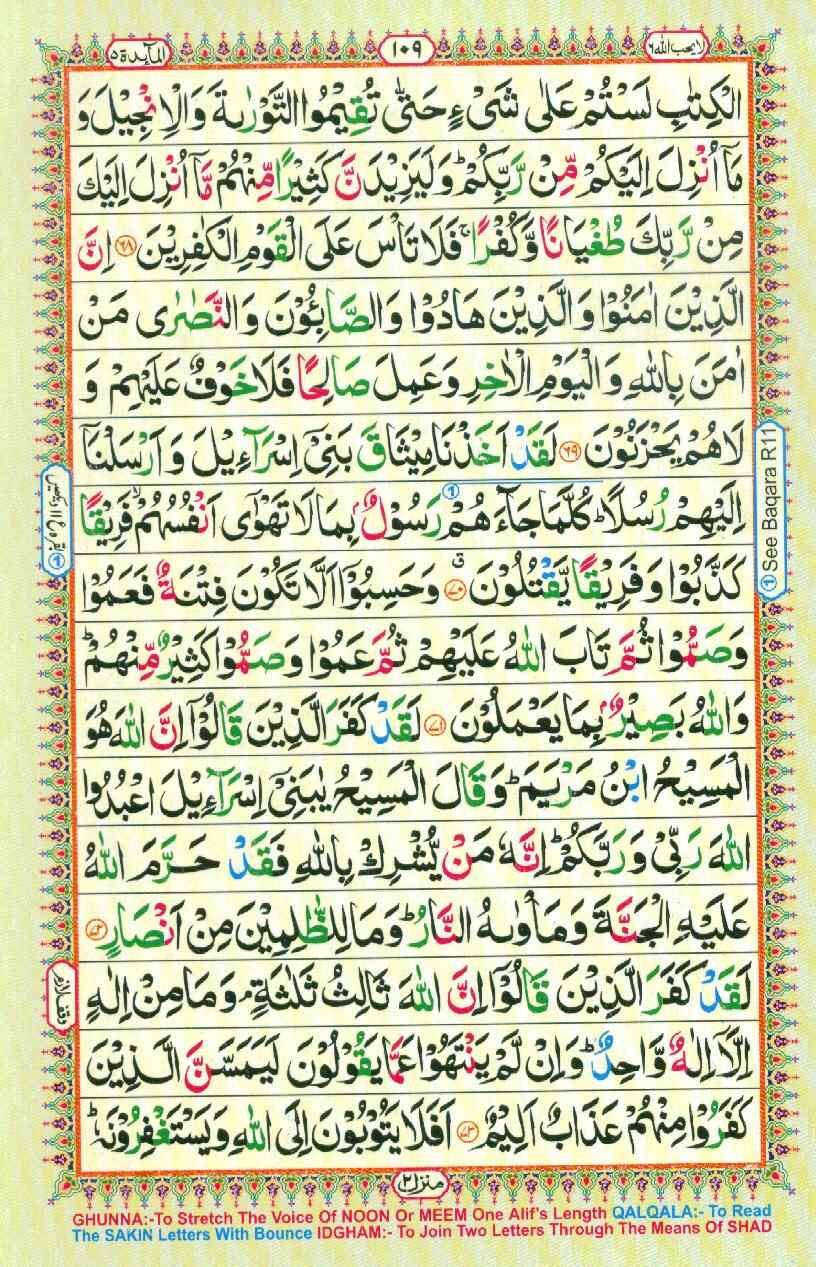 لا یحب الله ٦
١٠٩
المآىِٕدة ٥
الْكِتٰبِ لَسْتُمْ عَلٰى شَیْءٍ حَتّٰى تُقِیْمُوا التَّوْرٰىةَ وَ الْاِنْجِیْلَ وَ
مَاۤ اُنْزِلَ اِلَیْكُمْ مِّنْ رَّبِّكُمْ ؕ وَ لَیَزِیْدَنَّ كَثِیْرًا مِّنْهُمْ مَّاۤ اُنْزِلَ اِلَیْكَ
مِنْ رَّبِّكَ طُغْیَانًا وَّ كُفْرًا ۚ فَلَا تَاْسَ عَلَى الْقَوْمِ الْكٰفِرِیْنَ ﴿۶۸﴾ اِنَّ
الَّذِیْنَ اٰمَنُوْا وَ الَّذِیْنَ هَادُوْا وَ الصَّابِئُوْنَ وَ النَّصٰرٰى مَنْ
اٰمَنَ بِاللّٰهِ وَ الْیَوْمِ الْاٰخِرِ وَ عَمِلَ صَالِحًا فَلَا خَوْفٌ عَلَیْهِمْ وَ
لَا هُمْ یَحْزَنُوْنَ ﴿۶۹﴾ لَقَدْ اَخَذْنَا مِیْثَاقَ بَنِیْۤ اِسْرَآءِیْلَ وَ اَرْسَلْنَاۤ
اِلَیْهِمْ رُسُلًا ؕ كُلَّمَا جَآءَهُمْ رَسُوْلٌۢ بِمَا لَا تَهْوٰۤى اَنْفُسُهُمْ ۙ فَرِیْقًا
كَذَّبُوْا وَ فَرِیْقًا یَّقْتُلُوْنَ ﴿۷۰﴾ ۗ وَ حَسِبُوْۤا اَلَّا تَكُوْنَ فِتْنَةٌ فَعَمُوْا
وَ صَمُّوْا ثُمَّ تَابَ اللّٰهُ عَلَیْهِمْ ثُمَّ عَمُوْا وَ صَمُّوْا كَثِیْرٌ مِّنْهُمْ ؕ
وَ اللّٰهُ بَصِیْرٌۢ بِمَا یَعْمَلُوْنَ ﴿۷۱﴾ لَقَدْ كَفَرَ الَّذِیْنَ قَالُوْۤا اِنَّ اللّٰهَ هُوَ
الْمَسِیْحُ ابْنُ مَرْیَمَ ؕ وَ قَالَ الْمَسِیْحُ یٰبَنِیْۤ اِسْرَآءِیْلَ اعْبُدُوا
اللّٰهَ رَبِّیْ وَ رَبَّكُمْ ؕ اِنَّهٗ مَنْ یُّشْرِكْ بِاللّٰهِ فَقَدْ حَرَّمَ اللّٰهُ
عَلَیْهِ الْجَنَّةَ وَ مَاْوٰىهُ النَّارُ ؕ وَ مَا لِلظّٰلِمِیْنَ مِنْ اَنْصَارٍ ﴿۷۲﴾
لَقَدْ كَفَرَ الَّذِیْنَ قَالُوْۤا اِنَّ اللّٰهَ ثَالِثُ ثَلٰثَةٍ ۘ وَ مَا مِنْ اِلٰهٍ
اِلَّاۤ اِلٰهٌ وَّاحِدٌ ؕ وَ اِنْ لَّمْ یَنْتَهُوْا عَمَّا یَقُوْلُوْنَ لَیَمَسَّنَّ الَّذِیْنَ
كَفَرُوْا مِنْهُمْ عَذَابٌ اَلِیْمٌ ﴿۷۳﴾ اَفَلَا یَتُوْبُوْنَ اِلَى اللّٰهِ وَ یَسْتَغْفِرُوْنَهٗ ؕ
① See Baqara R11
وقف لازم
منزل ٢
GHUNNA:-To Stretch The Voice Of NOON Or MEEM One Alif's Length QALQALA:- To Read
The SAKIN Letters With Bounce IDGHAM:- To Join Two Letters Through The Means Of SHAD